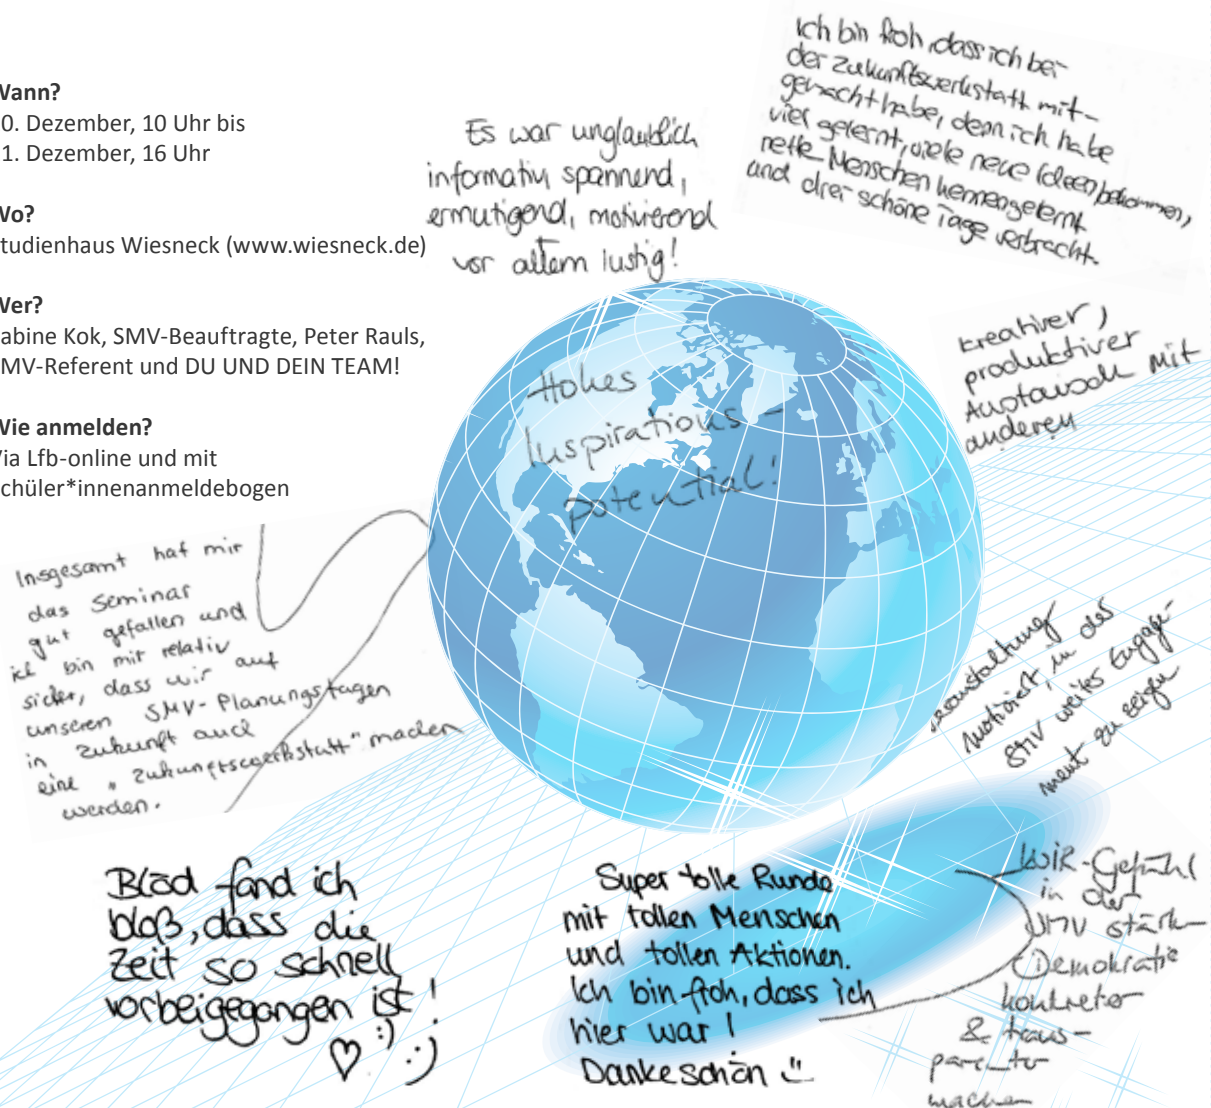 Wann?
0. Dezember, 10 Uhr bis
1. Dezember, 16 Uhr
Wo?
tudienhaus Wiesneck (www.wiesneck.de)
Wer?
abine Kok, SMV-Beauftragte, Peter Rauls,
MV-Referent und DU UND DEIN TEAM!
Wie anmelden?
Via Lfb-online und mit
chüler*innenanmeldebogen
Es war unglaublich
informativ, spannend,
ermutigend, motivierend
vor allem lustig!
Ich bin froh, dass ich bei
der Zukunftswerkstatt mit-
gemacht habe, denn ich habe
viel gelernt, viele neue Ideen bekommen,
nette Menschen kennengelernt
und drei schöne Tage verbracht.
Hohes
Inspirations-
potential!
kreativer,
produktiver
Austausch mit
anderen
Insgesamt hat mir
das Seminar
gut gefallen und
ich bin mir relativ
sicher, dass wir auf
unseren SMV-Planungstagen
in Zukunft auch
eine "Zukunftswerkstatt" machen
werden.
motiviert, in der
SMV weites Engage-
ment zu zeigen
Blöd fand ich
bloß, dass die
Zeit so schnell
vorbeigegangen ist!
♡ :) :)
Super tolle Runde
mit tollen Menschen
und tollen Aktionen.
Ich bin froh, dass ich
hier war!
Dankeschön
WIR-Gefühl
in der
SMV stärk
Demokratie
konkreter
& trans-
parenter
machen